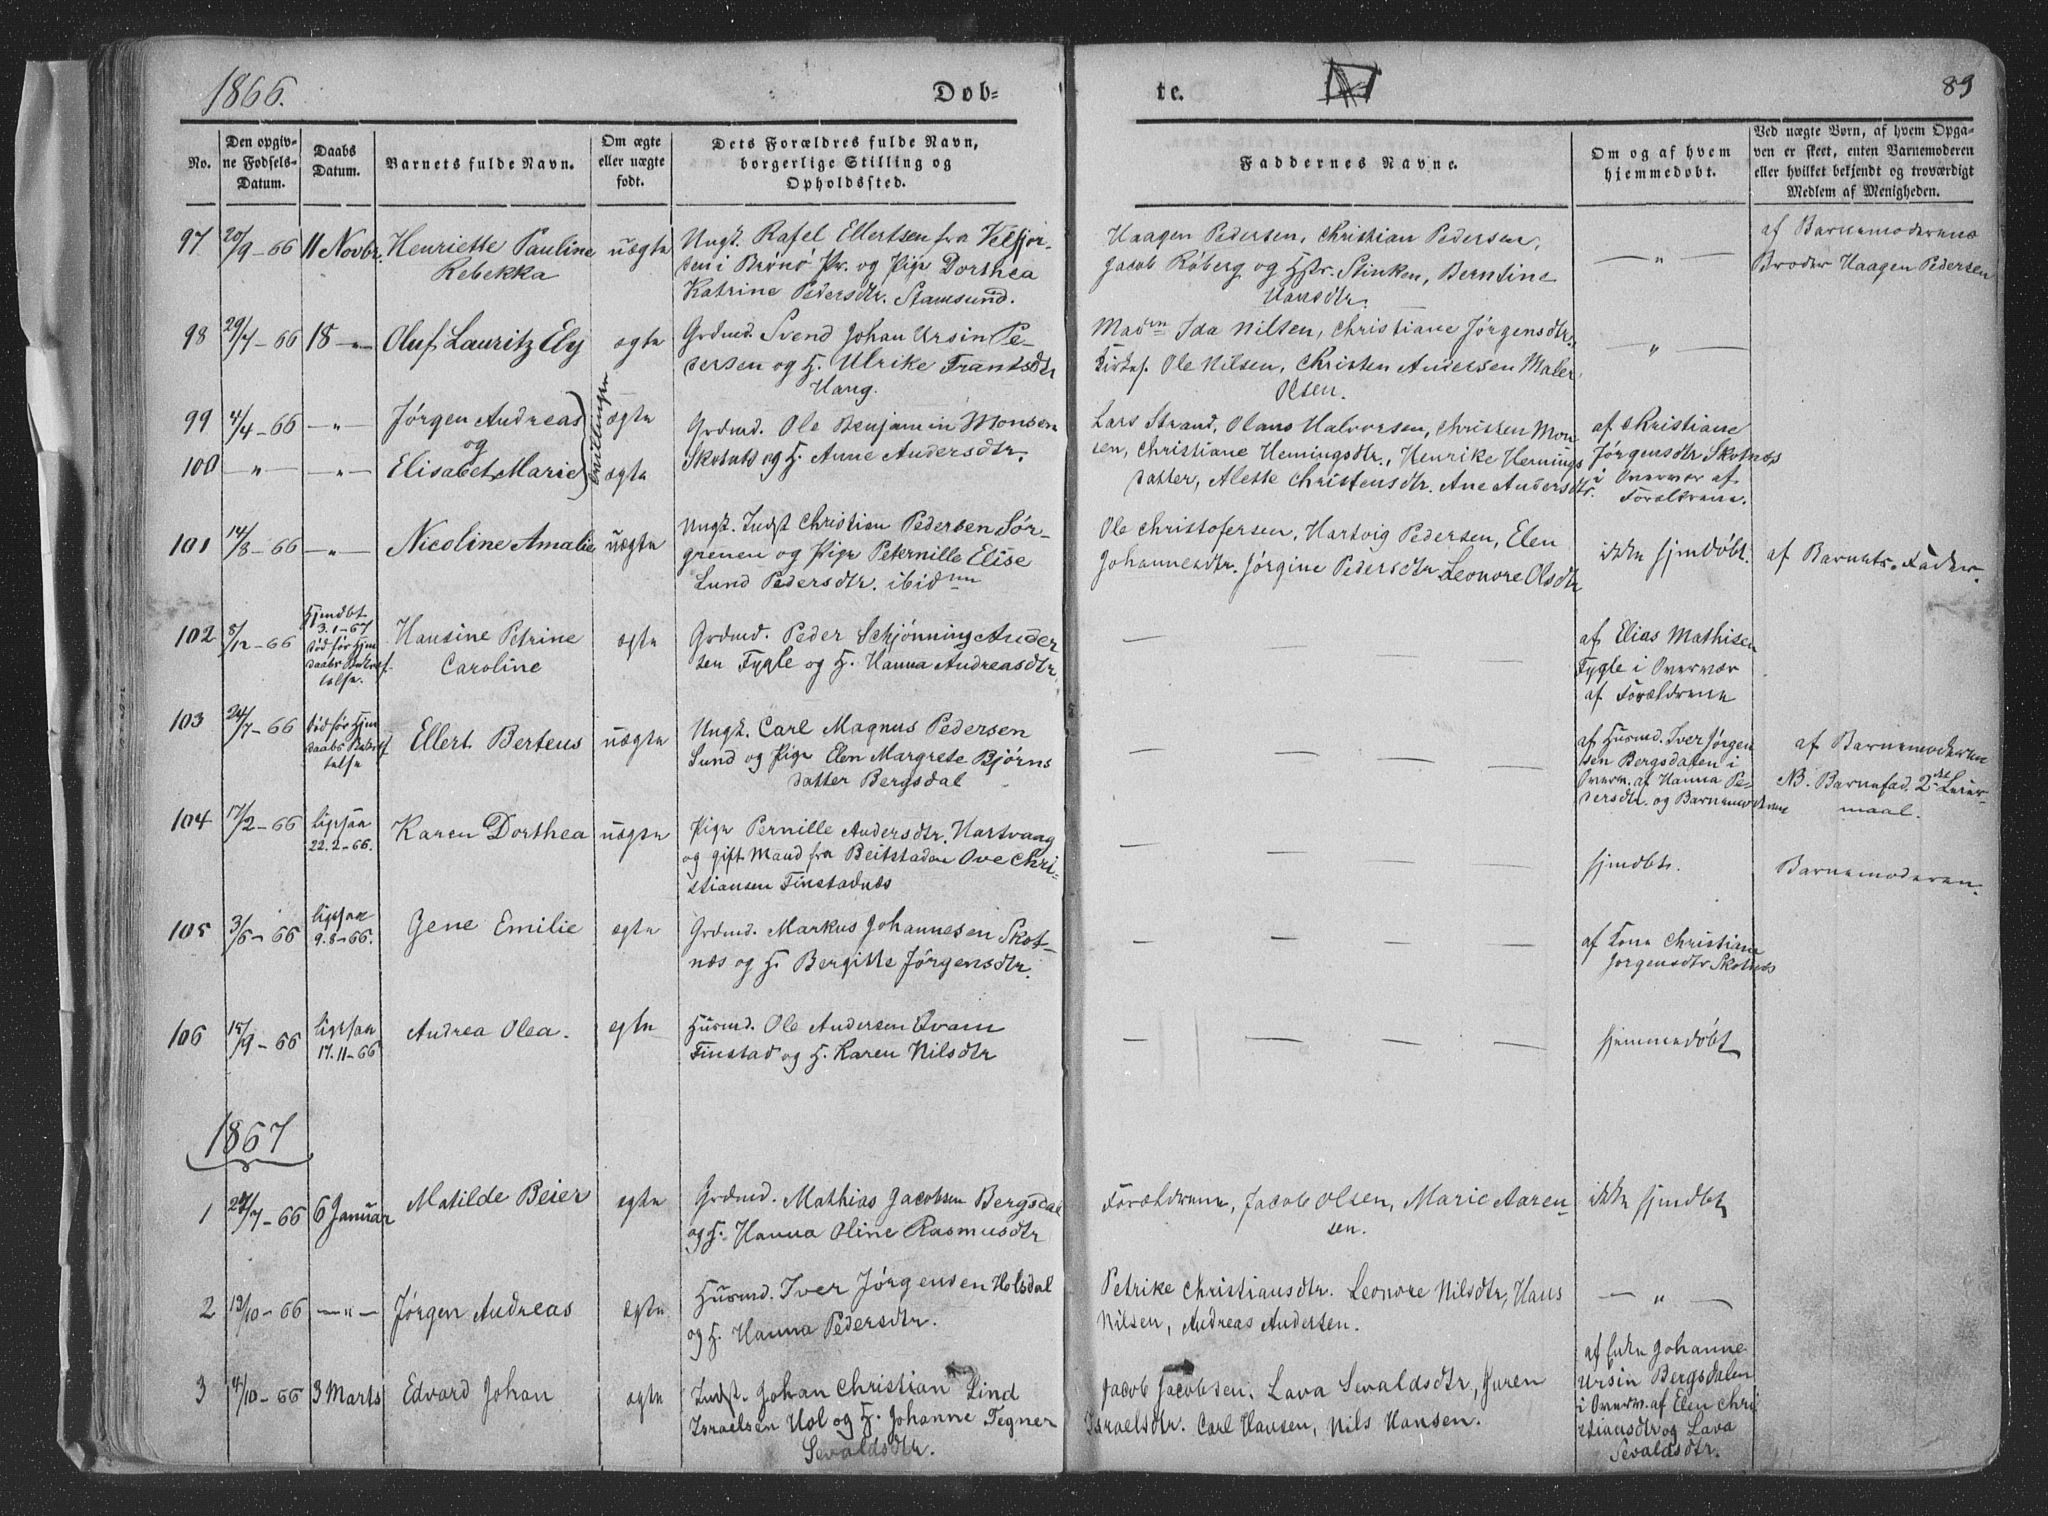 1866.
Døb-
te.
89
No.
Den opgiv-
ne Fødsels-
Datum.
Daabs
Datum.
Barnets fulde Navn.
Om ægte
eller uægte
født.
Dets Forældres fulde Navn,
borgerlige Stilling og
Opholdssted.
Faddernes Navne.
Om og af hvem
hjemmedøbt.
Ved uægte Børn, af hvem Opga-
ven er skeet, enten Barnemoderen
eller hvilket bekjendt og troværdigt
Medlem af Menigheden.
97 20/9-66 11 Novbr. Henriette Pauline
Rebekka
uægte
Ungk. Rafel Ellertsen fra Velfjor-
den i Brønø Pr. og Pige Dorthea
Katrine Pedersdtr. Stamsund.
Haagen Pedersen, Christian Pedersen,
Jacob Røberg og Hstr. Stinken, Berntine
Hansdtr.
— " —
af Barnemoderens
Broder Haagen Pedersen
98 29/7-66 18 -"- Oluf Lauritz Ely
ægte
Grdmd. Svend Johan Ursin Pe-
dersen og H. Ulrike Frantsdtr
Haug.
Madm Ida Nilsen, Christiane Jørgensdtr.
Kirkes. Ole Nilsen, Christen Andersen Maler
Olsen.
— " —
99 4/4-66 -"- Jørgen Andreas
og
100 -"- -"- Elisabet Marie
tvillinger
ægte
ægte
Grdmd. Ole Benjamin Monsen
Skotnes og H. Anne Andersdtr.
Lars Strand, Olaus Halvorsen, Christen Mon-
sen, Christiane Hemingsdtr., Henrike Hemings
datter, Alette Christensdtr. Ane Andersdtr.
af Christiane
Jørgensdtr Skotnes
i Overvær af
Forældrene.
101 14/8-66 -"- Nicoline Amalie
uægte
Ungk. Indst Christian Pedersen Sør-
grenen og Pige Peternille Elise
Lund Pedersdtr. ibidm
Ole Christofersen, Hartvig Pedersen, Elen
Johannesdtr. Jørgine Pedersdtr Leonore Olsdtr
ikke hjmdøbt.
af Barnets Fader.
102 8/12-66
Hjmdbt
3.1-67
død før Hjm
daabs Bekræf-
telse.
Hansine Petrine
Caroline
ægte
Grdmd. Peder Schjønning Ander
sen Fygle og H. Hanna Andreasdtr.
af Elias Mathisen
Fygle i Overvær
af Forældrene
103 24/7-66
død før Hjm
daabs Bekræf
telse
Ellert Berteus
uægte
Ungk. Carl Magnus Pedersen
Sund og Pige Elen Margrete Bjørns
datter Bergsdal
af Husmd. Iver Jørgen
sen Bergsdalen i
Overv. af Hanna Pe-
dersdtr. og Barnemoderen
af Barnemoderen
NB. Barnefad. 2det Leier-
maal.
104 17/2-66
ligesaa
22.2-66.
Karen Dorthea
uægte
Pige Pernille Andersdtr. Hartvaag
og gift Mand fra Beitstaden Ove Chri-
stiansen Finstadnæs
hjmdbt.
Barnemoderen.
105 3/6-66
ligesaa
9.8-66.
Gene Emilie
ægte
Grdmd. Markus Johannesen Skot-
næs og H. Bergitte Jørgensdtr.
af Kone Christiane
Jørgensdtr Skotnes
106 15/9-66
ligesaa
17.11-66
Andrea Olea.
egte
Husmd. Ole Andersen Qvam
Finstad og H. Karen Nilsdtr
hjemmedøbt
1867
1 27/7-66 6 Januar Matilde Beier
egte
Grdmd. Mathias Jacobsen Bergsdal
og H. Hanna Oline Rasmusdtr
Forældrene, Jacob Olsen, Marie Aaren-
sen.
ikke hjmdbt
2 13/10-66 -"- Jørgen Andreas
ægte
Husmd. Iver Jørgensen Holsdal
og H. Hanna Pedersdtr.
Petrike Christiansdtr. Leonore Nilsdtr, Hans
Nilsen, Andreas Andersen.
— " —
3 4/10-66 3 Marts Edvard Johan
ægte
Indst. Johan Christian Lind
Israelsen Hol og H. Johanne Tegner
Sevaldsdtr.
Jacob Jacobsen, Lava Sevaldsdtr, Juren
Israelsdtr. Carl Hansen, Nils Hansen.
af Enke Johanne
Ursin Bergsdalen
i Overv. af Elen Chri
stiansdtr og Lava
Sevaldsdtr.